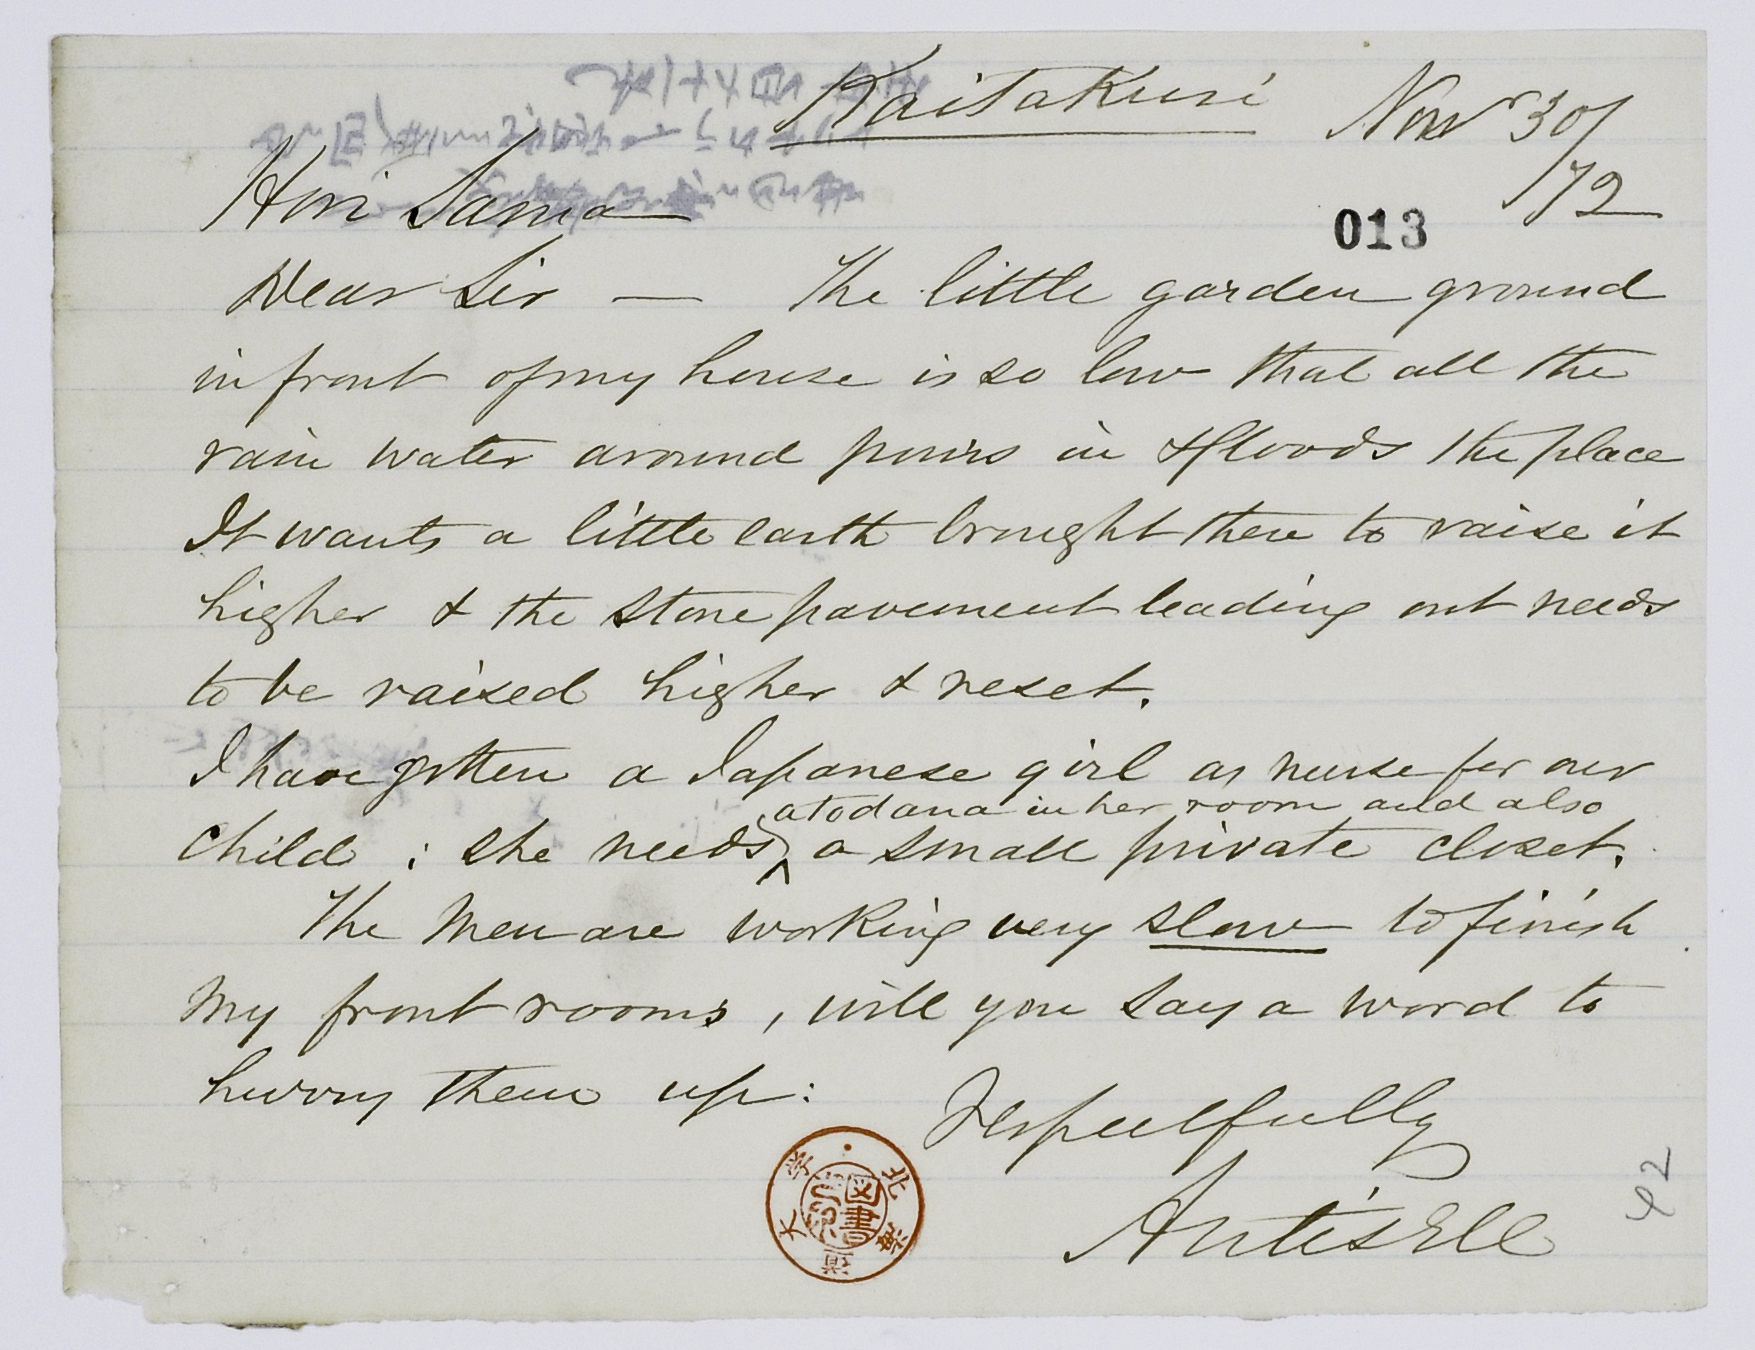 Kaitakusi Novr 30/
/72
Hori Sama
013
Dear Sir — The little garden ground
in front of my house is so low that all the
rain water around pours in & floods the place
It wants a little earth brought there to raise it
higher & the stone pavement leading out needs
to be raised higher & reset.
I have gotten a Japanese girl as nurse for our
atodana in her room and also
child ; she needs a small private closet.
The men are working very slow to finish
my front rooms, will you say a word to
hurry them up:
Respectfully
Antisell
北海道大学
図書